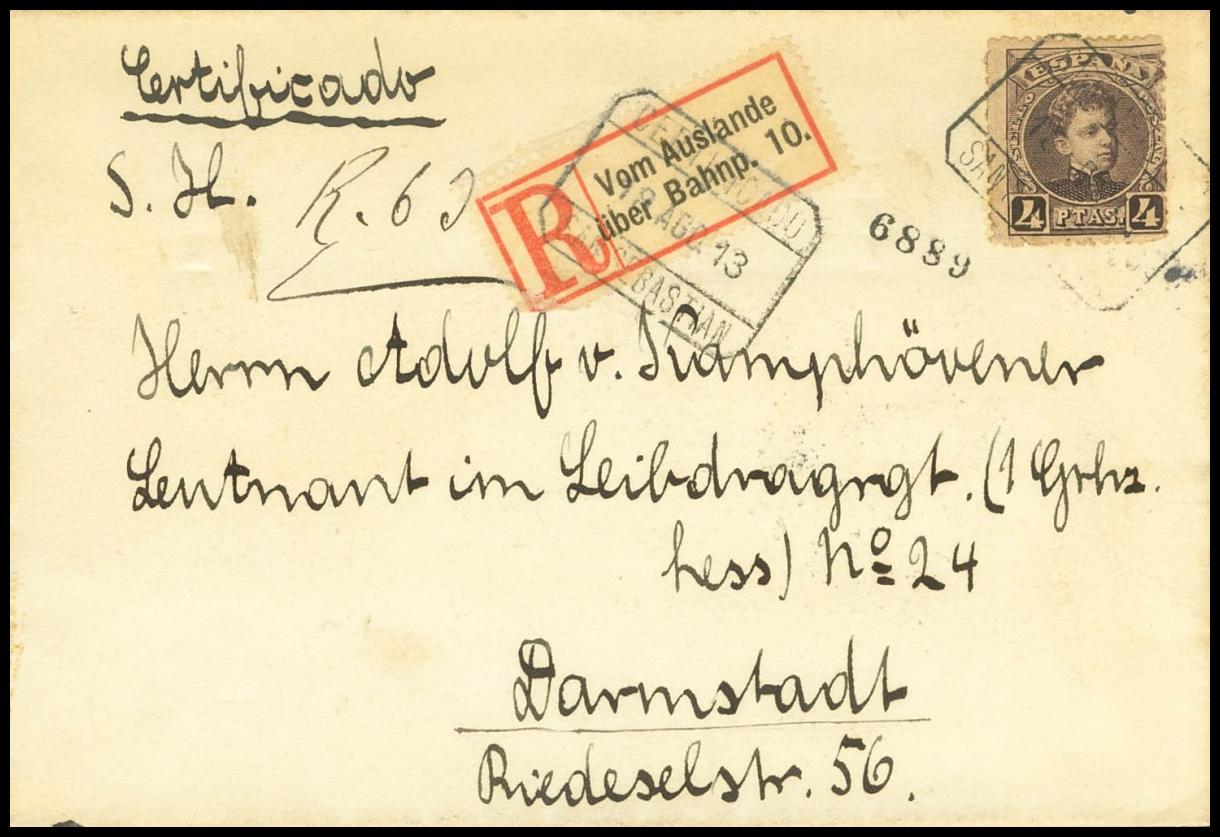 Certificado
S. H.
R. 6
R Vom Auslande
über Bahnp. 10.
CERTIFICADO
AGO. 13
SAN SEBASTIAN
6889
ESPAÑA
4 PTAS. 4
SAN
Herrn Adolf v. Kamphövener
Leutnant im Leibdragrgt. (1 Grhz.
hess) Nº 24
Darmstadt
Riedeselstr. 56.